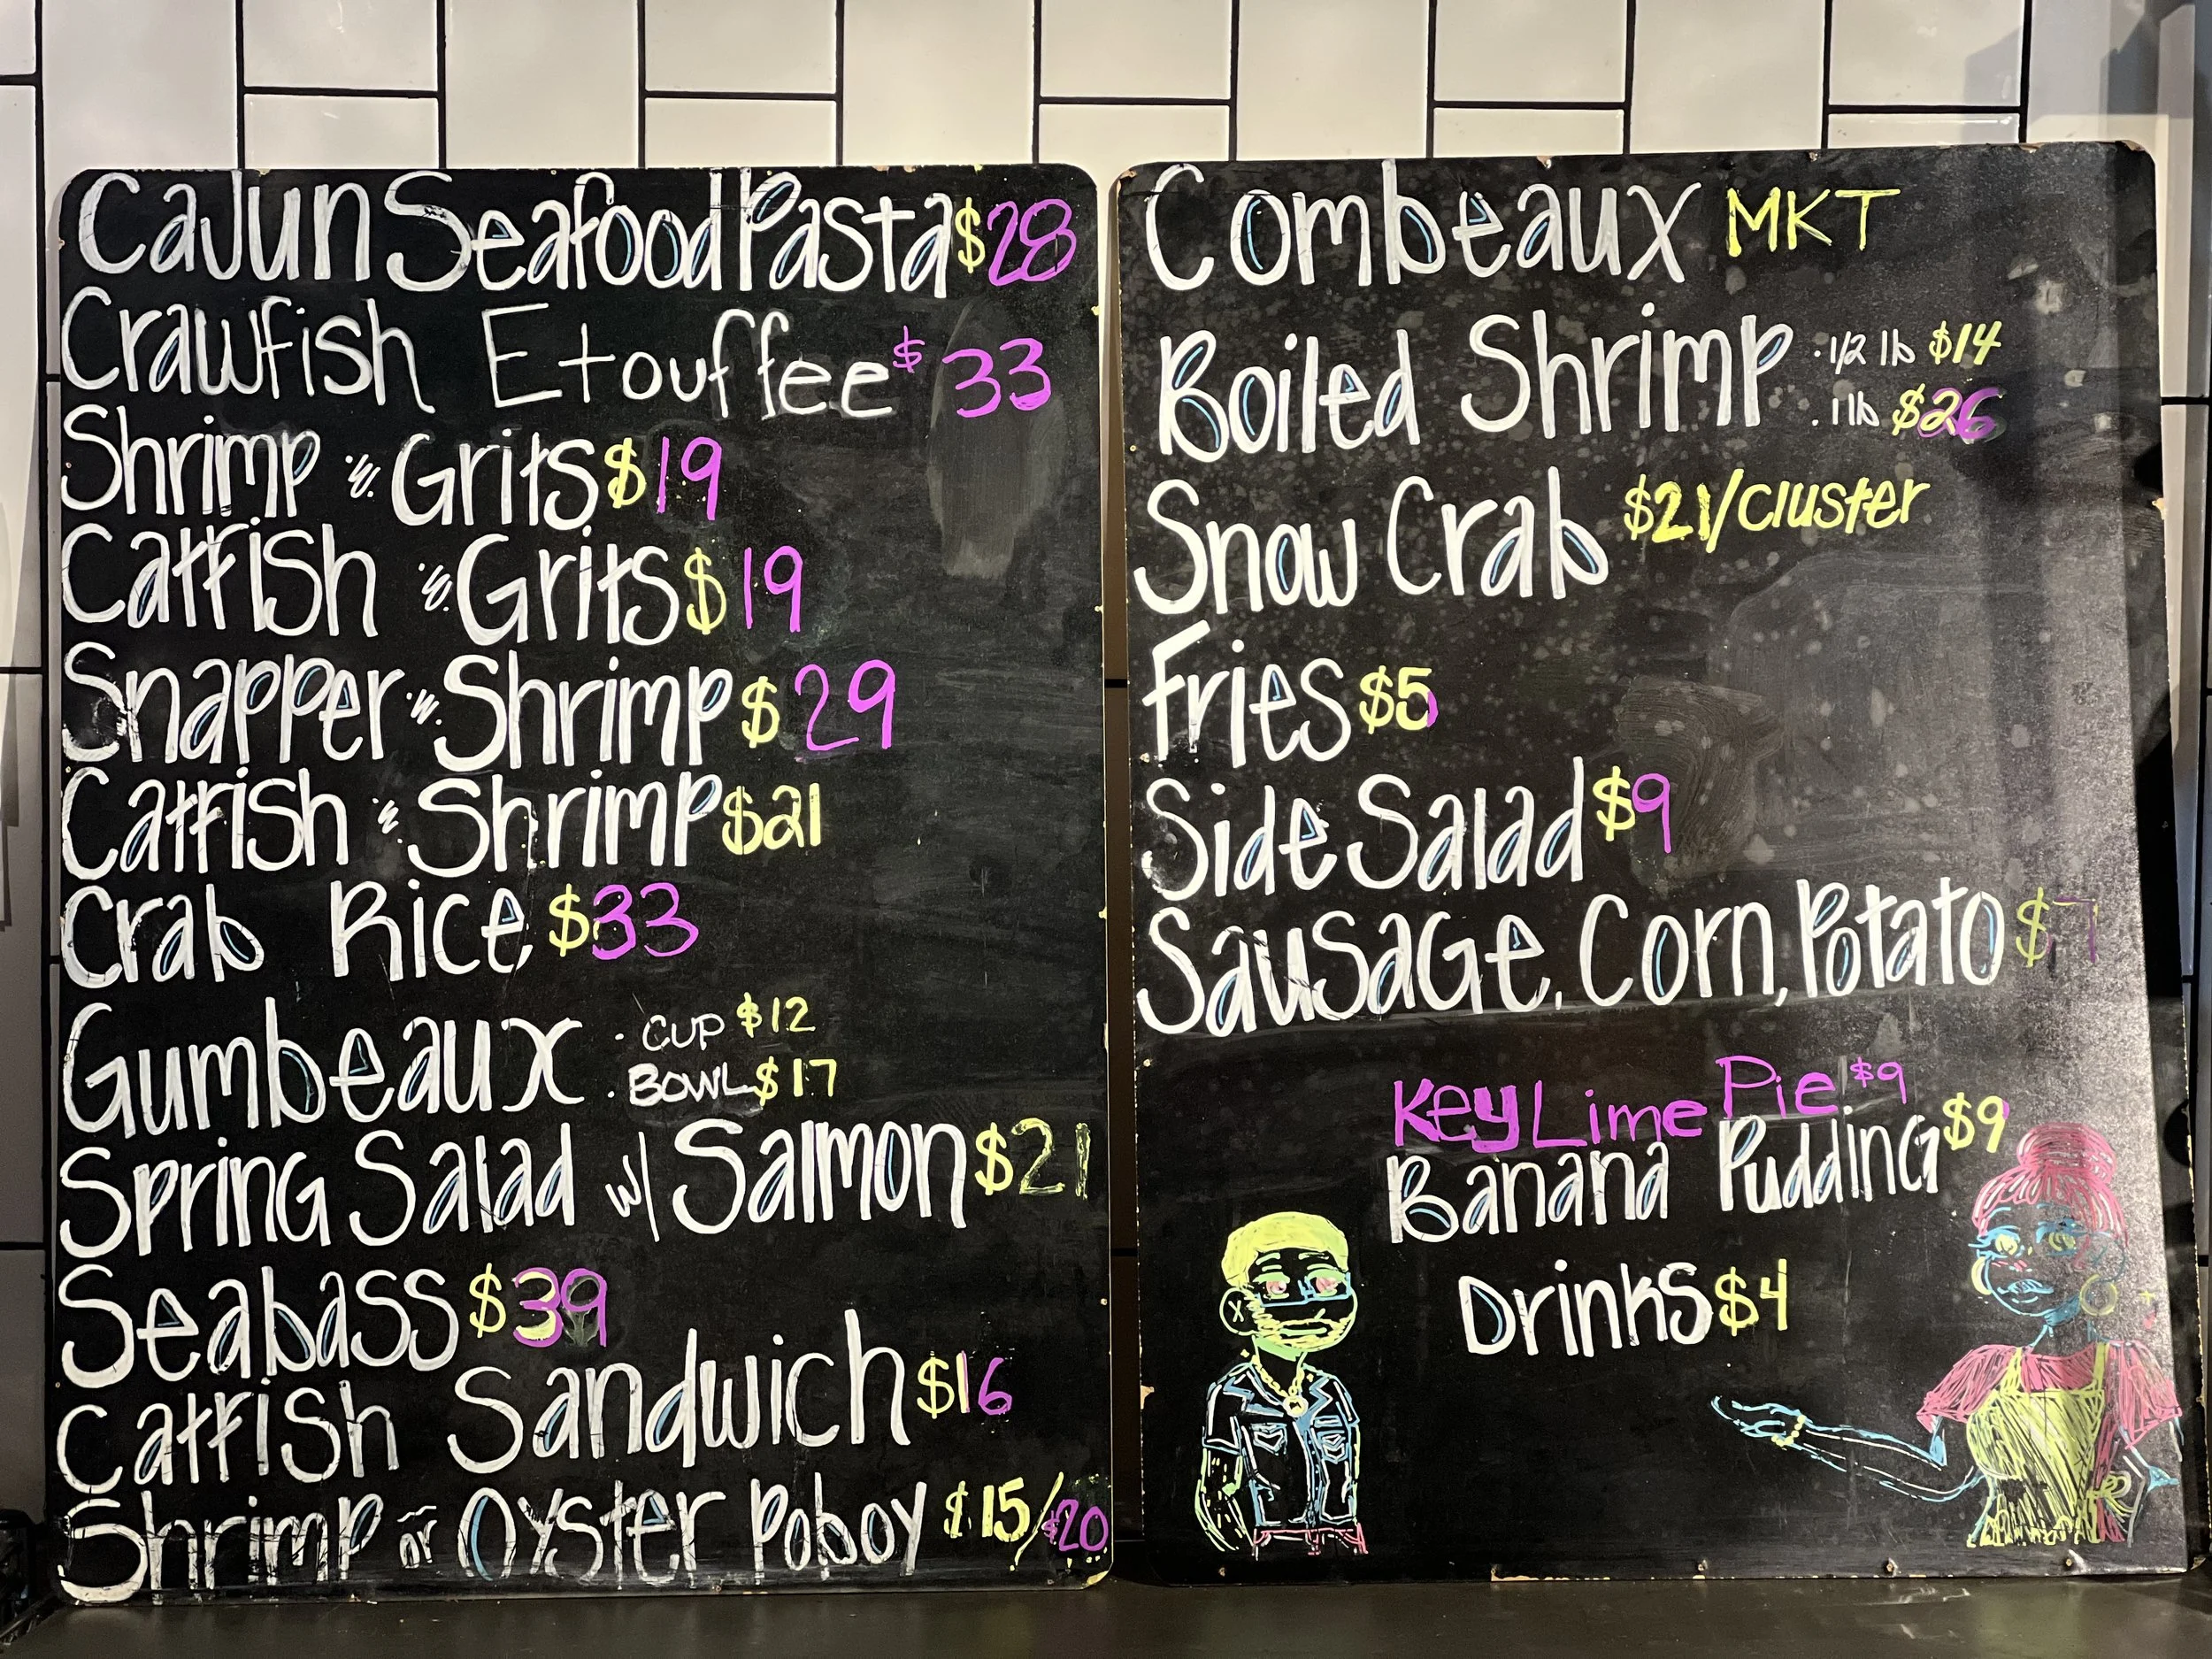 Cajun Seafood Pasta $28
Crawfish Etouffee $33
Shrimp & Grits $19
Catfish & Grits $19
Snapper & Shrimp $29
Catfish & Shrimp $21
Crab Rice $33
Gumbeaux
· CUP $12
· BOWL $17
Spring Salad w/ Salmon $21
Seabass $39
Catfish Sandwich $16
Shrimp or Oyster Poboy $15/$20
Combeaux MKT
Boiled Shrimp
· 1/2 lb $14
· 1 lb $26
Snow Crab $21/Cluster
Fries $5
Side Salad $9
Sausage, Corn, Potato $7
Key Lime Pie $9
Banana Pudding $9
Drinks $4